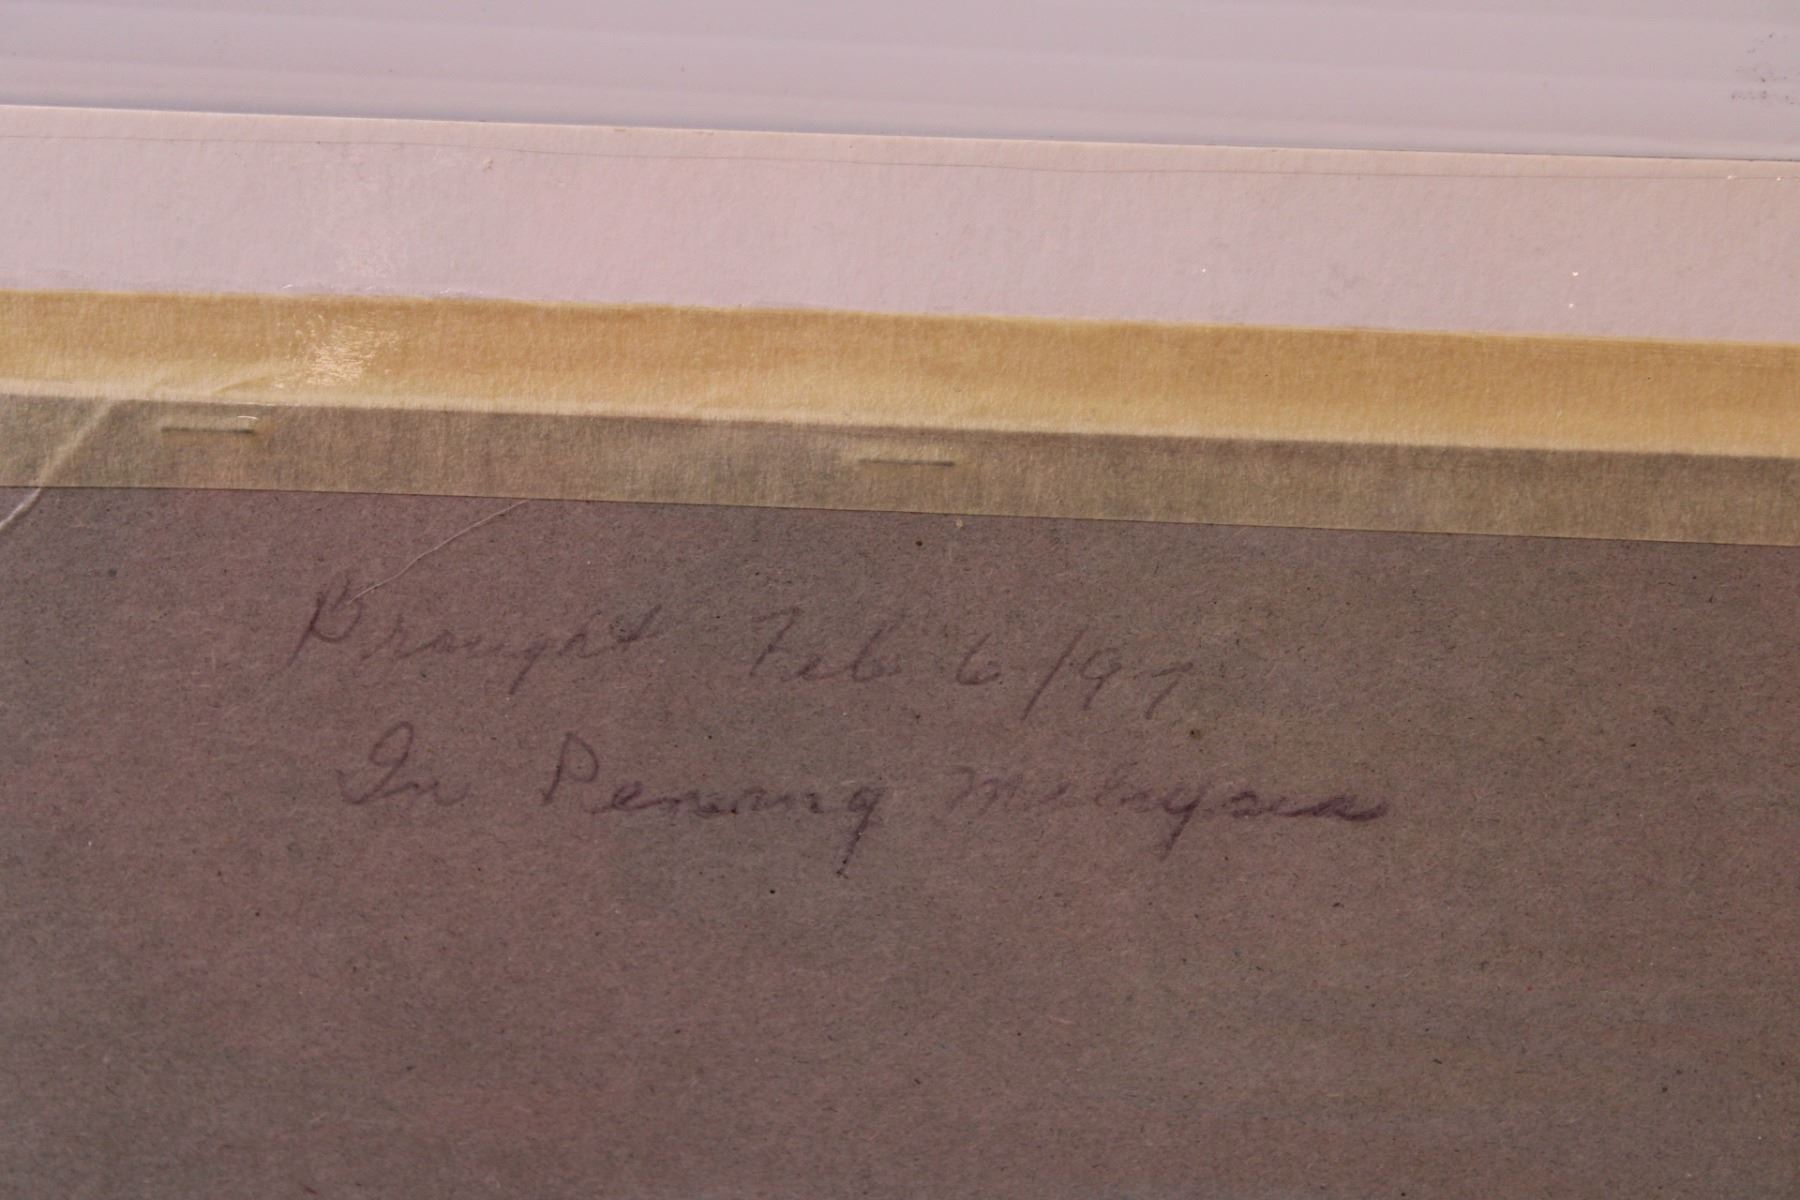 Brought Feb 6/97
In Penang Malaysia